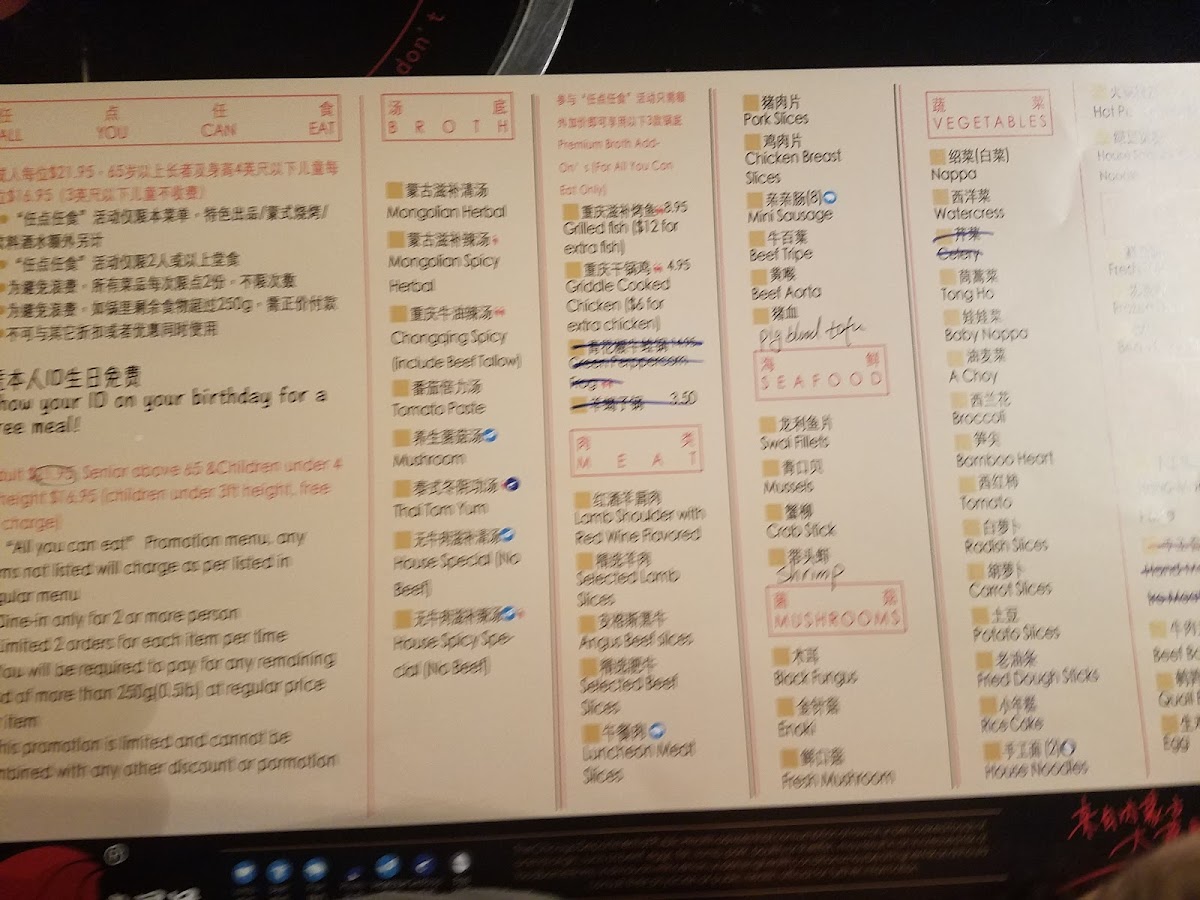 don't
任 点 任 食
ALL YOU CAN EAT
人每位$21.95，65岁以上长者及身高4英尺以下儿童每
位$16.95 (3英尺以下儿童不收费)
"任点任食" 活动仅限本菜单，特色出品/蒙式烧烤/
酒水额外另计
"任点任食" 活动仅限2人或以上堂食
为避免浪费，所有菜品每次限点2份，不限次数
为避免浪费，如锅里剩余食物超过250g，需正价付款
不可与其它折扣或者优惠同时使用
本人ID生日免费
how your ID on your birthday for a
ree meal!
dult $21.95, Senior above 65 &Children under 4
height $16.95 (children under 3ft height), free
charge)
"All you can eat" Promotion menu, any
ms not listed will charge as per listed in
gular menu
Dine-in only for 2 or more person
Limited 2 orders for each item per time
You will be required to pay for any remaining
d of more than 250g(0.5lb) at regular price
r item
his promotion is limited and cannot be
mbined with any other discount or pormotion
汤 底
BROTH
蒙古滋补清汤
Mongolian Herbal
蒙古滋补辣汤
Mongolian Spicy
Herbal
重庆牛油辣汤
Chongqing Spicy
(include Beef Tallow)
番茄倍力汤
Tomato Paste
养生蘑菇汤
Mushroom
泰式冬阴功汤
Thai Tom Yum
无牛肉滋补清汤
House Special (No
Beef)
无牛肉滋补辣汤
House Spicy Spe-
cial (No Beef)
参与 "任点任食" 活动只需额
外加价即可享用以下3款锅底
Premium Broth Add-
On's (For All You Can
Eat Only)
重庆滋补烤鱼 8.95
Grilled fish ($12 for
extra fish)
重庆干锅鸡 4.95
Griddle Cooked
Chicken ($6 for
extra chicken)
Green Peppercorn
Frog
羊蝎子锅 3.50
肉 类
MEAT
红酒羊肩肉
Lamb Shoulder with
Red Wine Flavored
精选羊肉
Selected Lamb
Slices
安格斯肥牛
Angus Beef slices
精选肥牛
Selected Beef
Slices
午餐肉
Luncheon Meat
Slices
猪肉片
Pork Slices
鸡肉片
Chicken Breast
Slices
亲亲肠(8)
Mini Sausage
牛百叶
Beef Tripe
黄喉
Beef Aorta
猪血
pig blood tofu
海 鲜
SEAFOOD
龙利鱼片
Swai Fillets
青口贝
Mussels
蟹柳
Crab Stick
带头虾
Shrimp
菌 菇
MUSHROOMS
木耳
Black Fungus
金针菇
Enoki
鲜口菇
Fresh Mushroom
蔬 菜
VEGETABLES
绍菜(白菜)
Nappa
西洋菜
Watercress
芹菜
Celery
茼蒿菜
Tong Ho
娃娃菜
Baby Nappa
油麦菜
A Choy
西兰花
Broccoli
笋尖
Bamboo Heart
西红柿
Tomato
白萝卜
Radish Slices
胡萝卜
Carrot Slices
土豆
Potato Slices
老油条
Fried Dough Sticks
小年糕
Rice Cake
手工面 (2)
House Noodles
Hot Po
House
Noodle
Fresh
牛肉
Beef Ba
鹌鹑
Quail E
生鸡
Egg